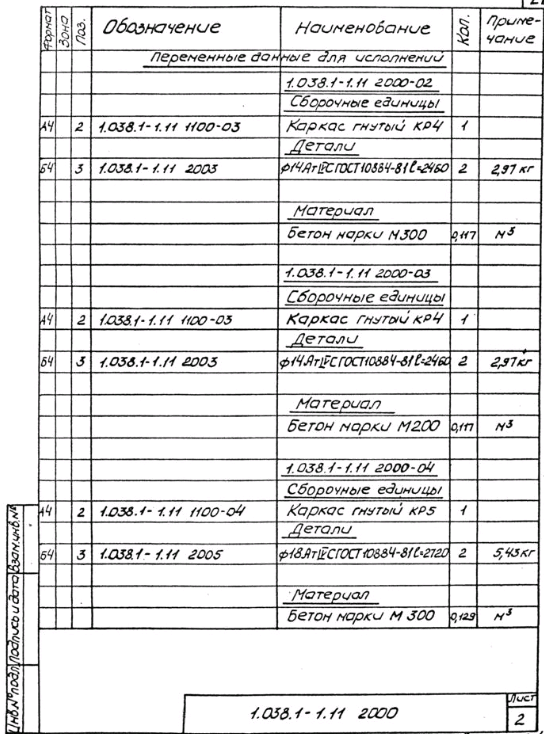 Формат Зона Поз. Обозначение Наименование Кол. Примечание
Переменные данные для исполнений
1.038.1-1.11 2000-02
Сборочные единицы
А4 2 1.038.1-1.11 1100-03 Каркас гнутый КР4 1
Детали
Б4 3 1.038.1-1.11 2003 ф14АтIVС ГОСТ10884-81 ℓ=2460 2 2,97 кг
Материал
Бетон марки М300 0,117 м³
1.038.1-1.11 2000-03
Сборочные единицы
А4 2 1.038.1-1.11 1100-03 Каркас гнутый КР4 1
Детали
Б4 3 1.038.1-1.11 2003 ф14АтIVС ГОСТ10884-81 ℓ=2460 2 2,97кг
Материал
Бетон марки М200 0,117 м³
1.038.1-1.11 2000-04
Сборочные единицы
А4 2 1.038.1-1.11 1100-04 Каркас гнутый КР5 1
Детали
Б4 3 1.038.1-1.11 2005 ф18АтIVС ГОСТ10884-81 ℓ=2720 2 5,43кг
Материал
Бетон марки М 300 0,129 м³
Инв.№подл. Подпись и дата Взам.инв.№
1.038.1-1.11 2000
Лист
2